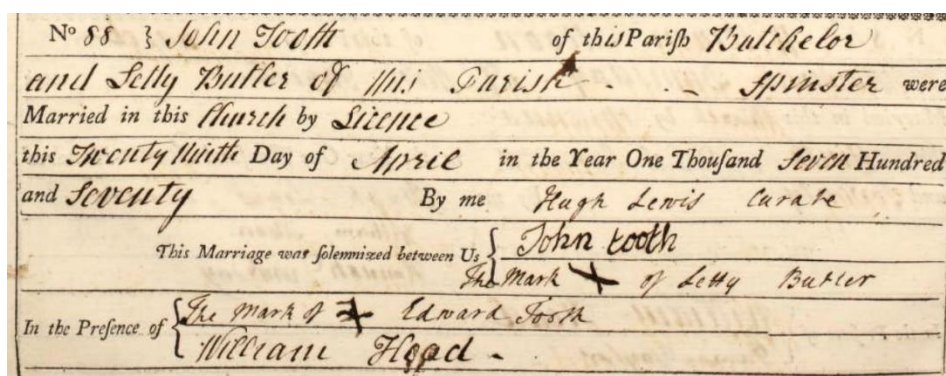 No 88 } John Tooth of this Pariſh Batchelor
and Letty Butler of this Parish - . - Spinster were
Married in this Church by Licence
this Twenty Ninth Day of April in the Year One Thouſand Seven Hundred
and Seventy By me Hugh Lewis Curate
This Marriage was ſolemnized between Us { John tooth
The Mark X of Letty Butler
In the Preſence of { The Mark of X Edward Tooth
William Hood -